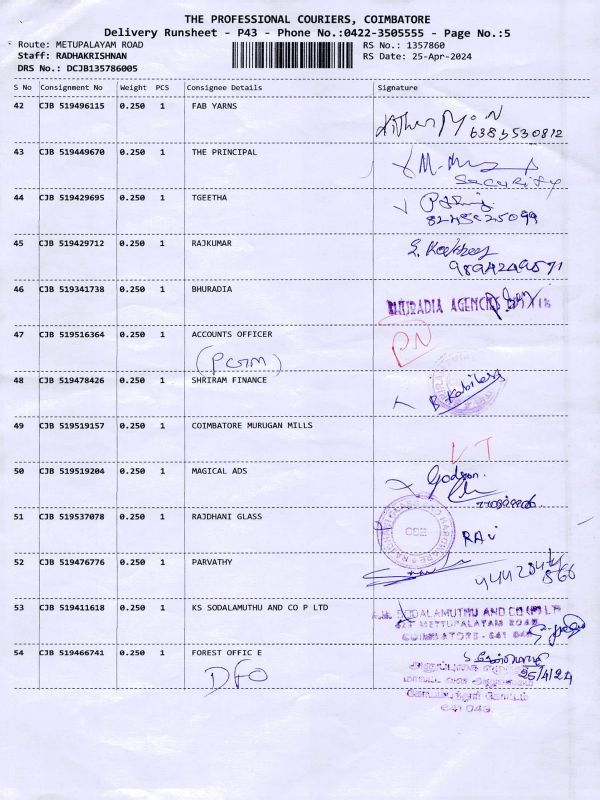 THE PROFESSIONAL COURIERS, COIMBATORE
Delivery Runsheet - P43 - Phone No.:0422-3505555 - Page No.:5
Route: METUPALAYAM ROAD
RS No.: 1357860
Staff: RADHAKRISHNAN
RS Date: 25-Apr-2024
DRS No.: DCJB135786005
S No Consignment No Weight PCS Consignee Details Signature
42 CJB 519496115 0.250 1 FAB YARNS
6385530812
43 CJB 519449670 0.250 1 THE PRINCIPAL
SECURITY
44 CJB 519429695 0.250 1 TGEETHA
45 CJB 519429712 0.250 1 RAJKUMAR
9894249571
46 CJB 519341738 0.250 1 BHURADIA
BHURADIA AGENCIES
47 CJB 519516364 0.250 1 ACCOUNTS OFFICER
PN
48 CJB 519478426 0.250 1 SHRIRAM FINANCE
49 CJB 519519157 0.250 1 COIMBATORE MURUGAN MILLS
50 CJB 519519204 0.250 1 MAGICAL ADS
51 CJB 519537078 0.250 1 RAJDHANI GLASS
CBE
RAJDHANI GLASS AND HARDWARE
52 CJB 519476776 0.250 1 PARVATHY
53 CJB 519411618 0.250 1 KS SODALAMUTHU AND CO P LTD
SODALAMUTHU AND CO (P) LTD
METTUPALAYAM ROAD
COIMBATORE - 641 043
54 CJB 519466741 0.250 1 FOREST OFFIC E
DFO
25/4/24
641 043